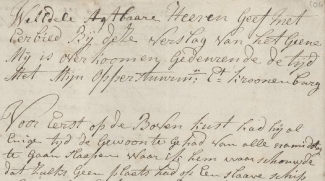 Weldele Agtbaare Heeren Geef met
Eerbied Bij deze verslag van het Geene
Mij is over koomen Geduurende de tijd
Met Mijn Opperstuurm:n Ct Kroonenburg
Voor Eerst op de Boven kust had hij al
Enige tijd de Gewoonte gehad van alle namiddag
te Gaan Slaapen Waar ik hem waarschouwde
dat zulks Geen plaats had op Een Slaave schip